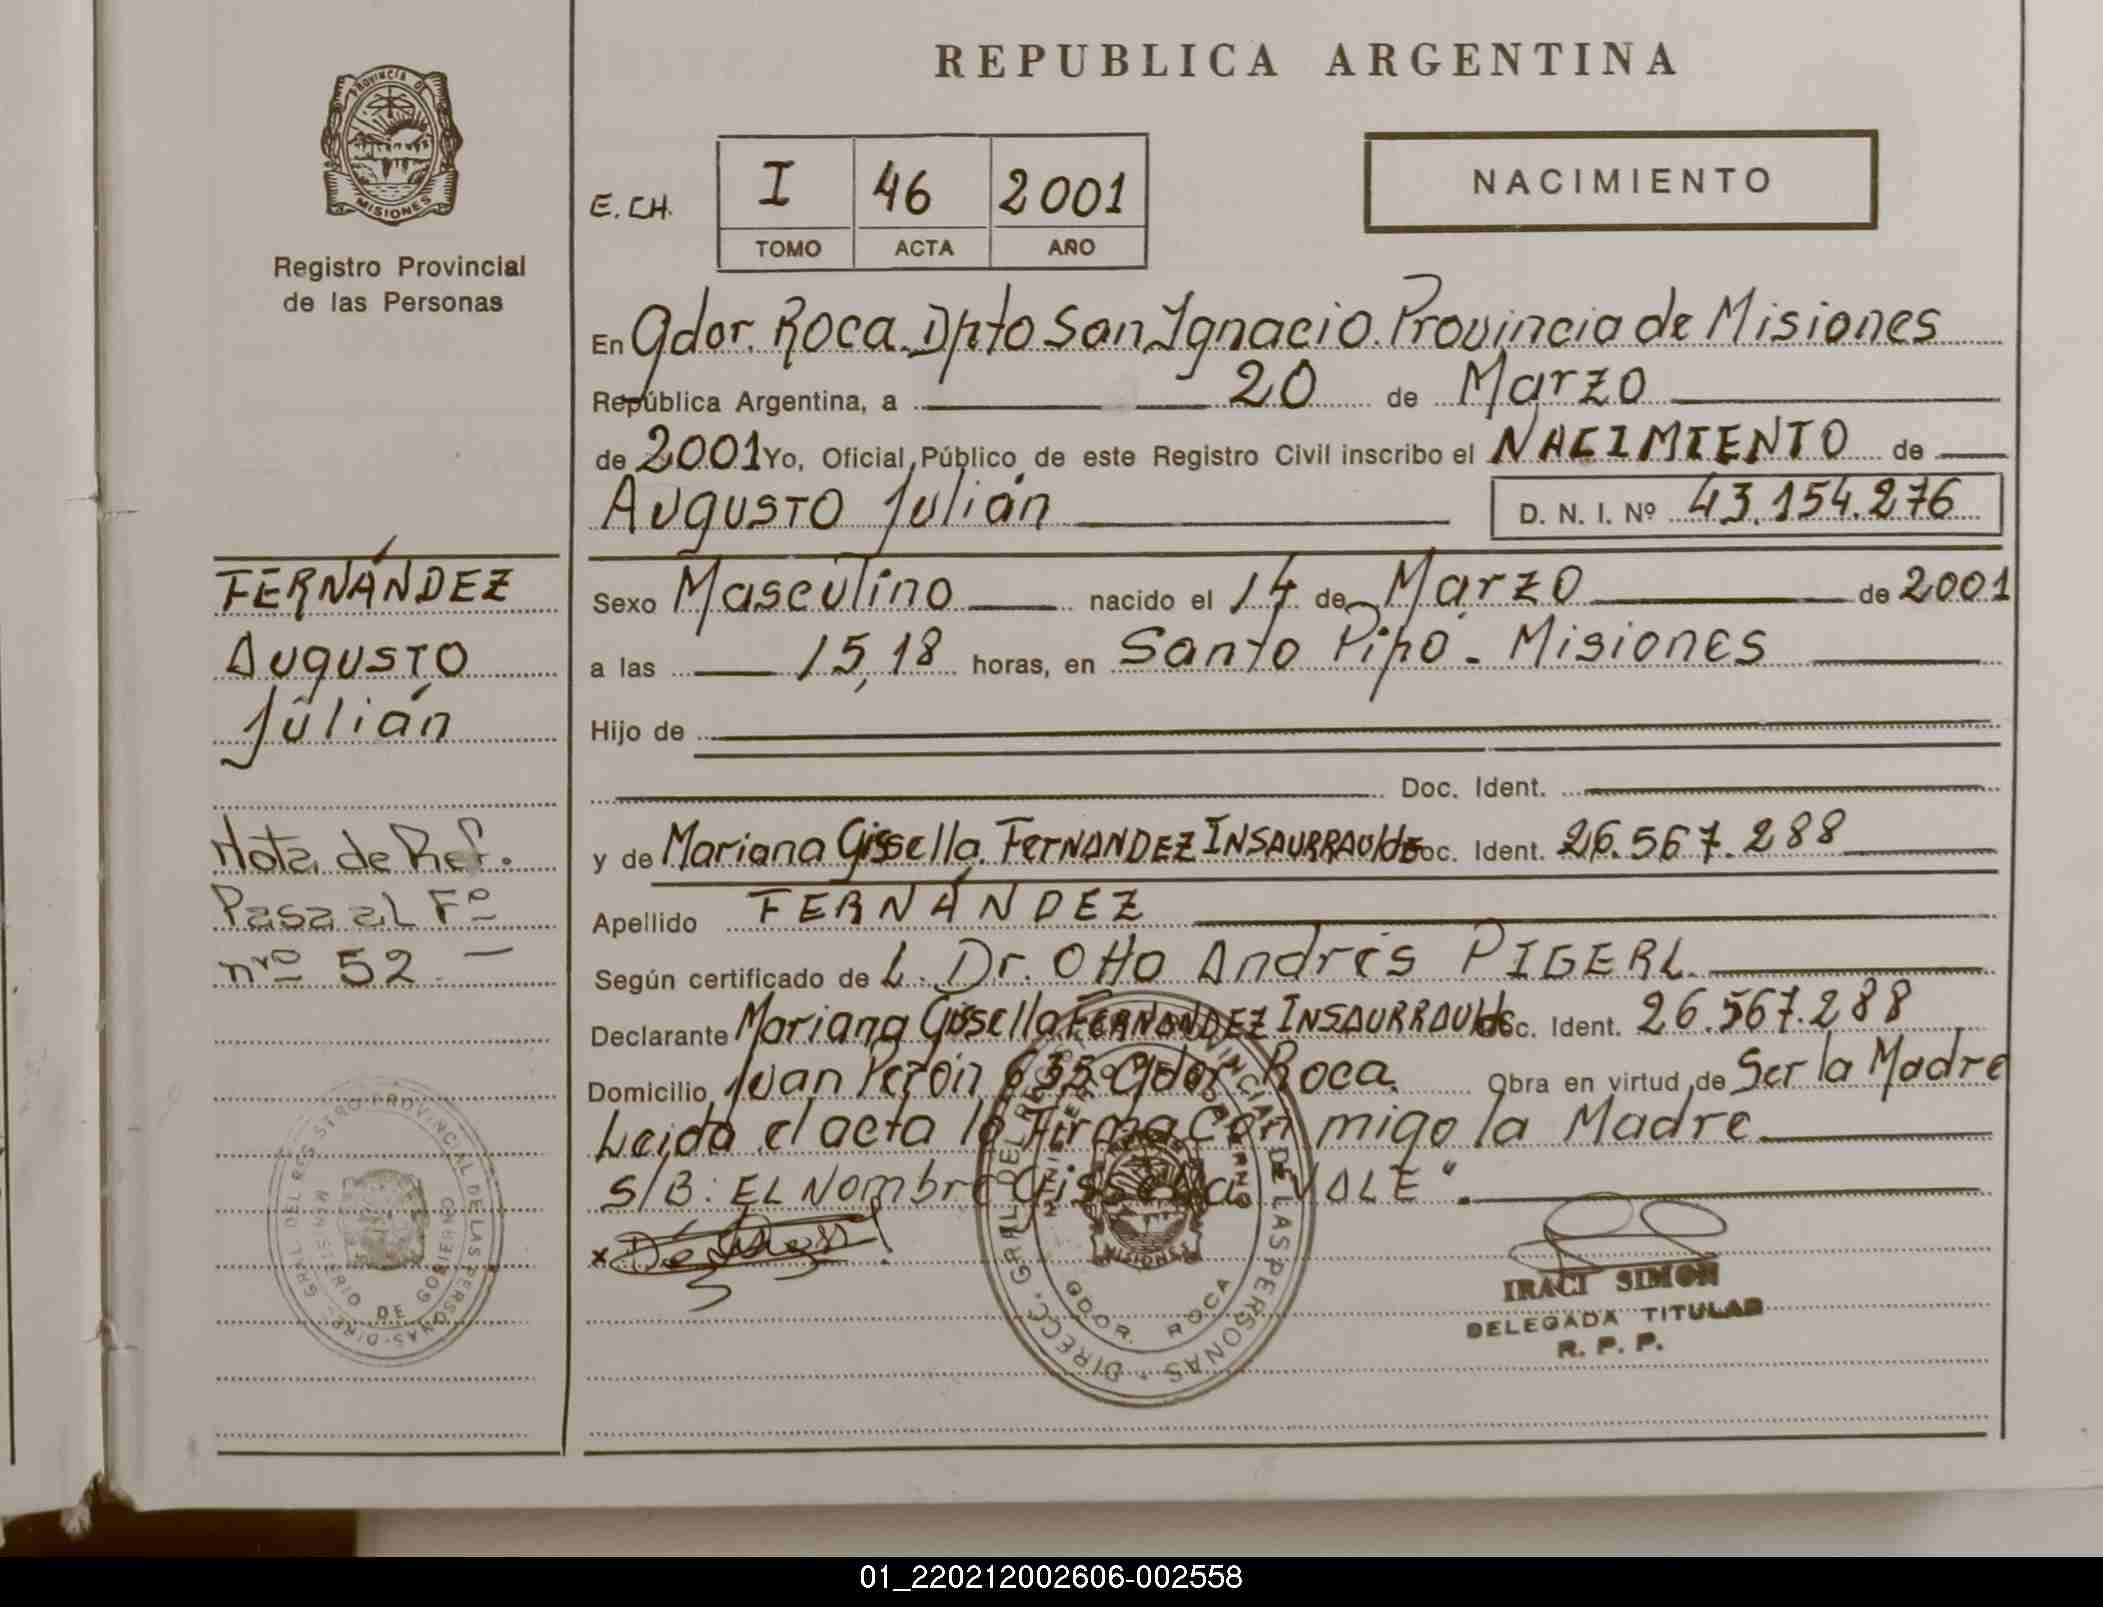 REPUBLICA ARGENTINA
PROVINCIA DE
MISIONES
Registro Provincial
de las Personas
E. CH.
I 46 2001
TOMO ACTA AÑO
NACIMIENTO
En Gdor. Roca. Dpto San Ignacio. Provincia de Misiones
República Argentina, a 20 de Marzo
de 2001 Yo, Oficial Público de este Registro Civil inscribo el NACIMIENTO de
Augusto Julián D. N. I. Nº 43.154.276
FERNÁNDEZ
Augusto
Julián
Nota de Ref.
Pasa al Fº
nrº 52. –
Sexo Masculino nacido el 14 de Marzo de 2001
a las 15,18 horas, en Santo Pipó - Misiones
Hijo de
Doc. Ident.
y de Mariana Gissella FERNANDEZ INSAURRALDE Doc. Ident. 26.567.288
Apellido FERNÁNDEZ
Según certificado de L. Dr. Otto Andrés PIGERL
Declarante Mariana Gissella FERNANDEZ INSAURRALDE Doc. Ident. 26.567.288
Domicilio Juan Perón 635 Gdor. Roca Obra en virtud de Ser la Madre
Leida el acta la Firma Con migo la Madre
S/B: EL Nombre Gissella VALE".
x
IRACI SIMON
DELEGADA TITULAR
R. P. P.
DIRECC. GRAL. DEL REGISTRO PROVINCIAL DE LAS PERSONAS
MINISTERIO DE GOBIERNO
GDOR. ROCA
MISIONES
DIREC. GRAL. DEL REGISTRO PROVINCIAL DE LAS PERSONAS
MINISTERIO DE GOBIERNO
01_220212002606-002558